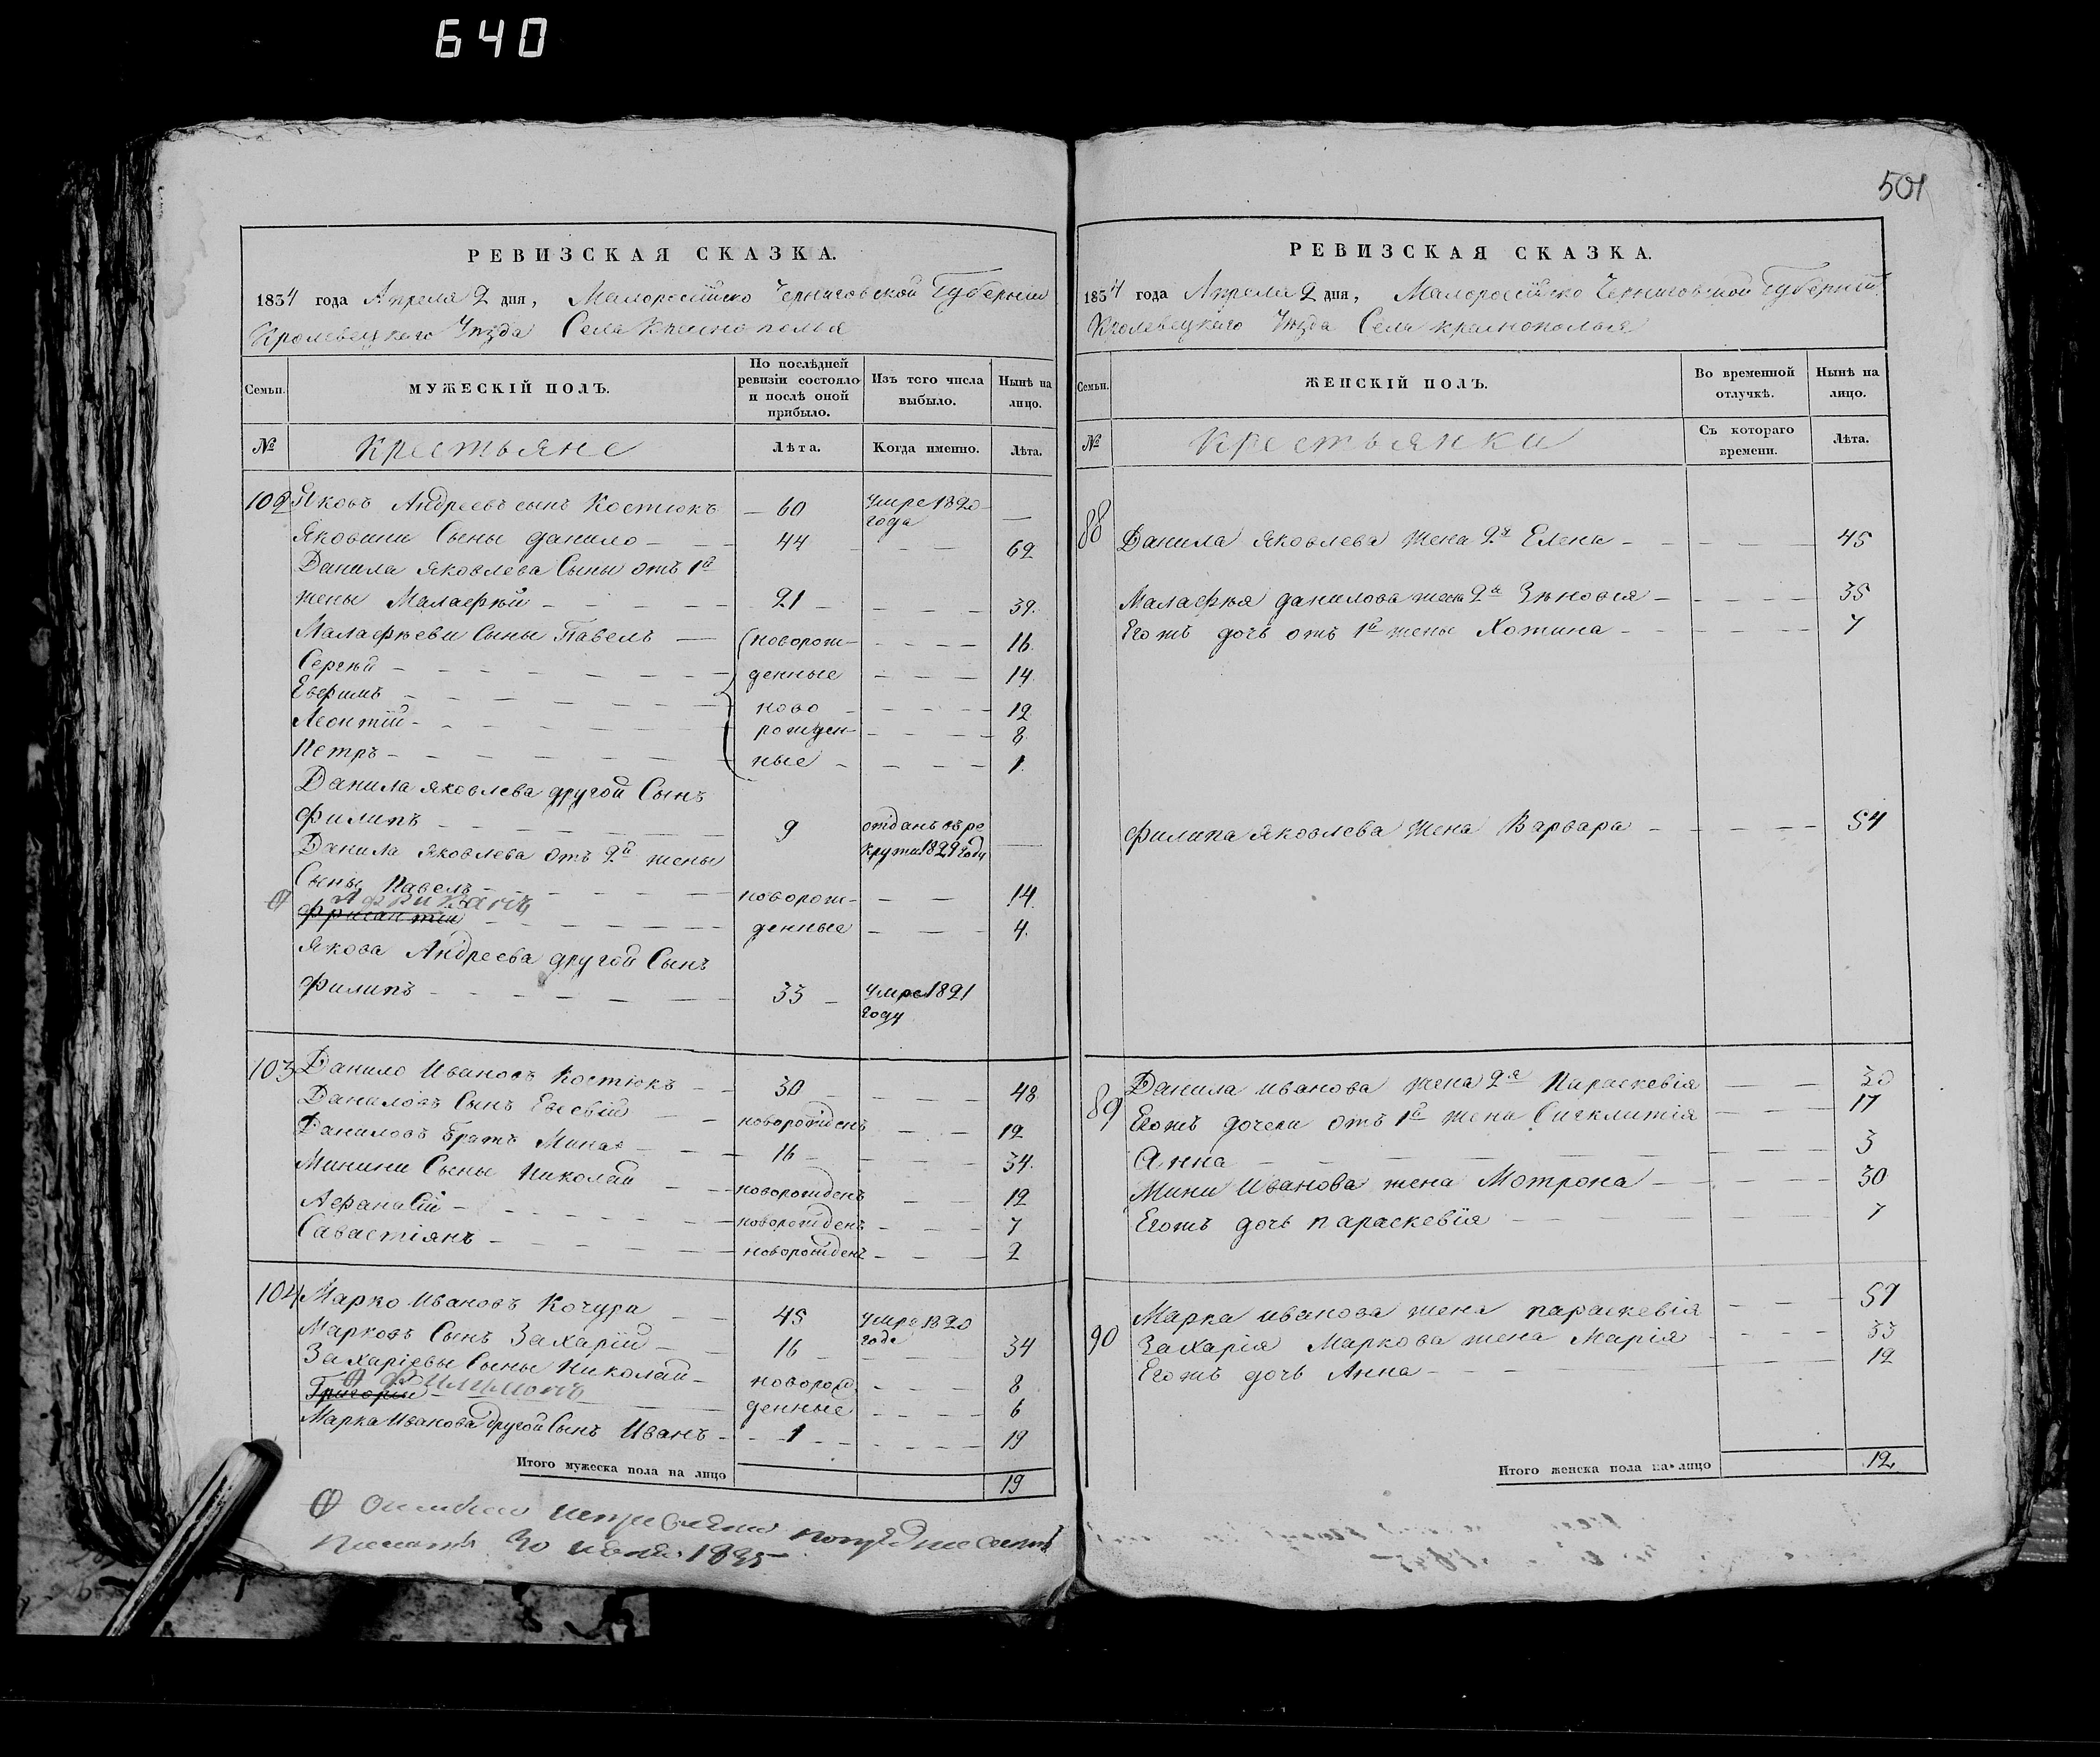 640
501
РЕВИЗСКАЯ СКАЗКА.
1834 года Апреля 2 дня, Малоросiйско Черниговской Губернiи
Кролевецкаго Уѣзда Села Краснополья
Семьи. МУЖЕСКІЙ ПОЛЪ. По послѣдней ревизіи состояло и послѣ оной прибыло. Изъ того числа выбыло. Нынѣ на лицо.
№ Крестьяне Лѣта. Когда именно. Лѣта.
102 Яковъ Андреевъ сынъ Костюкъ — 60 Умре 1820 года —
Яковини Сыны Данило 44 62
Данила Яковлева Сыны отъ 1й
жены Малафѣй 21 39.
Малафѣеви Сыны Павелъ новорож- 16
Сергѣй денные 14
Евфимъ ново 12
Леонтiй рожден- 8
Петръ ные 1
Данила Яковлева другой Сынъ
Филипъ 9 отданъ въ рекруты 1829 году —
Данила Яковлева отъ 2й жены
Сыны Павелъ новорож- 14.
Африканъ денные 4.
Якова Андреева другой Сынъ
Филипъ 33 Умре 1821 году
103 Данило Ивановъ Костюкъ 30 48
Даниловъ Сынъ Евсевiй новорожденъ 12
Даниловъ братъ Мина 16 34.
Минини Сыны Николай новорожденъ 12
Афанасiй новорожденъ 7
Савастiянъ новорожденъ 2
104 Марко Ивановъ Кочура 45 Умре 1820 года
Марковъ Сынъ Захарiй 16 34
Захарiевы Сыны Николай новорож 8
Григорiй Филимонъ денные 6
Марка Иванова другой Сынъ Иванъ 1 19
Итого мужеска пола на лицо 19
30 1835
РЕВИЗСКАЯ СКАЗКА.
1834 года Апреля 2 дня, Малоросiйско Черниговской Губернiи
Кролевецкаго Уѣзда Села Краснополья
Семьи. ЖЕНСКІЙ ПОЛЪ. Во временной отлучкѣ. Нынѣ на лицо.
№ Крестьянки Съ котораго времени. Лѣта.
88 Данила Яковлева жена 2я Елена 45
Малафѣя Данилова жена 2я Зѣновiя 35
Егожъ дочь отъ 1й жены Хотина 7
Филипа Яковлева жена Варвара 54
89 Данила Иванова жена 2я Параскевiя 30
Егожъ дочери отъ 1й жены Сигклитiя 17
Анна 3
Мини Иванова жена Мотрона 30
Егожъ дочь Параскевiя 7
90 Марка Иванова жена Параскевiя 59
Захарiя Маркова жена Марiя 33
Егожъ дочь Анна 12
Итого женска пола на лицо 12